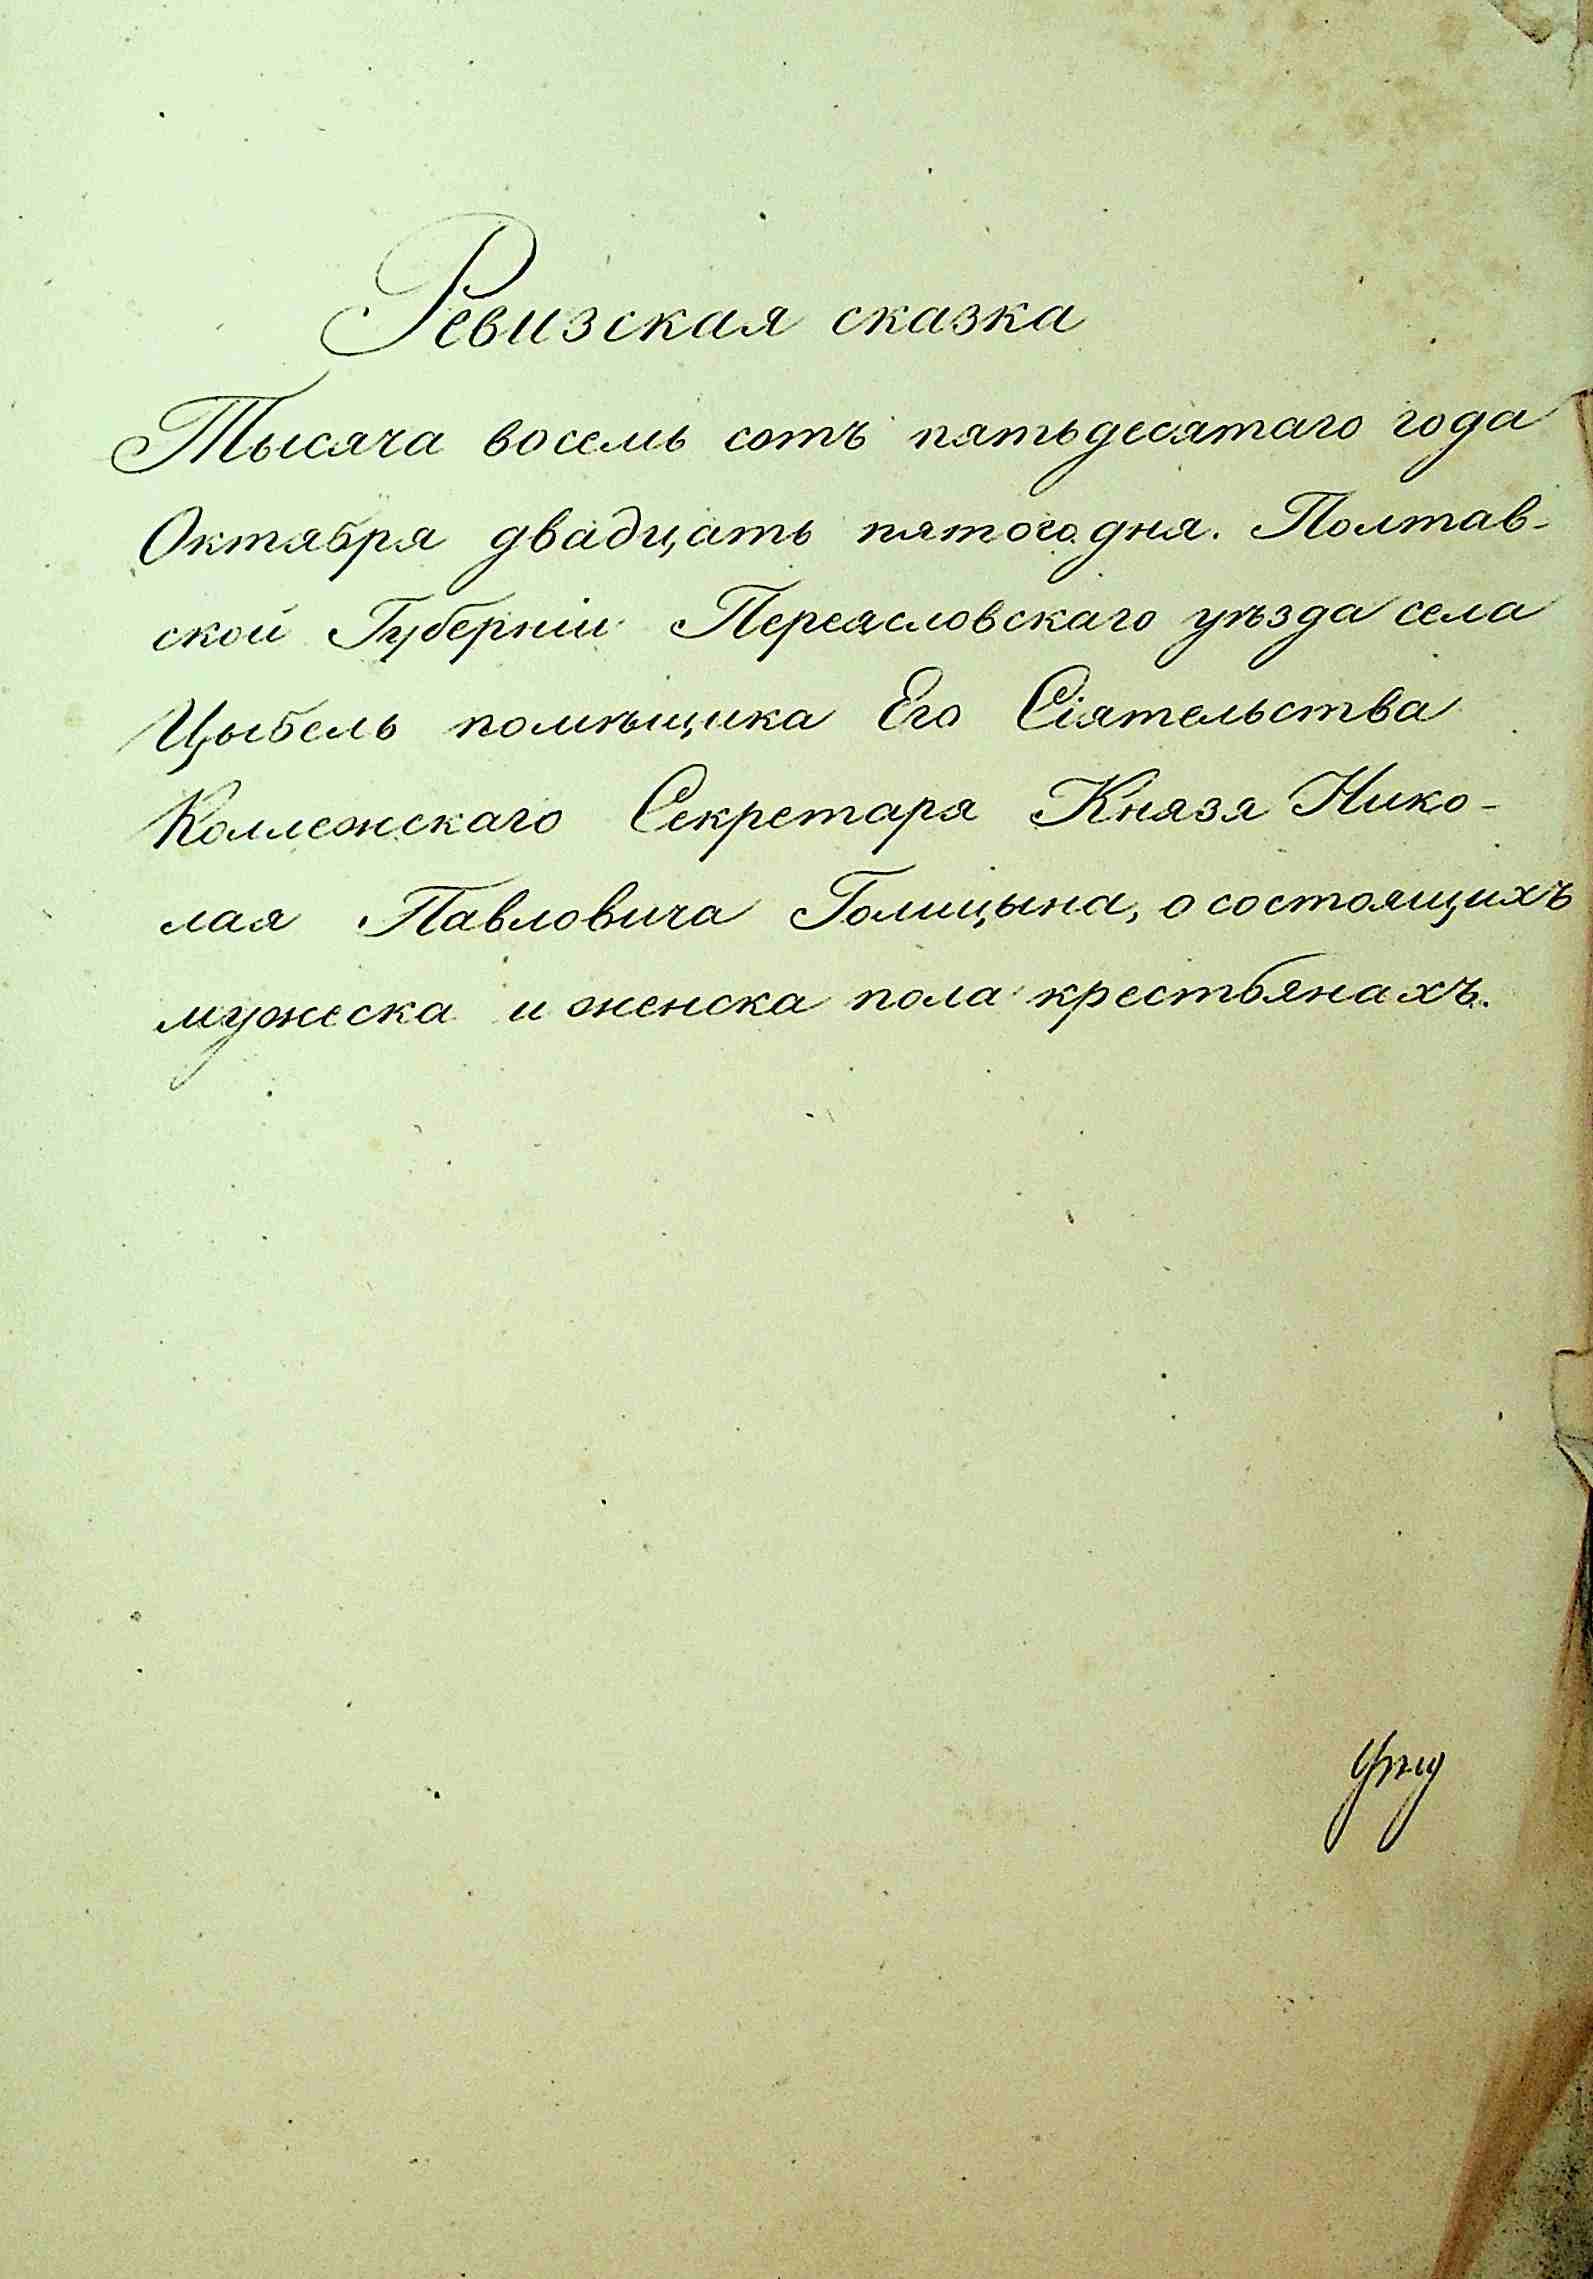 Ревизская сказка
Тысяча восемь сотъ пятьдесятаго года
Октября двадцать пятого дня. Полтав-
ской Губерніи Переясловскаго уѣзда села
Цыбель помѣщика Его Сіятельства
Коллежскаго Секретаря Князя Нико-
лая Павловича Голицына, о состоящихъ
мужеска и женска пола крестьянахъ.